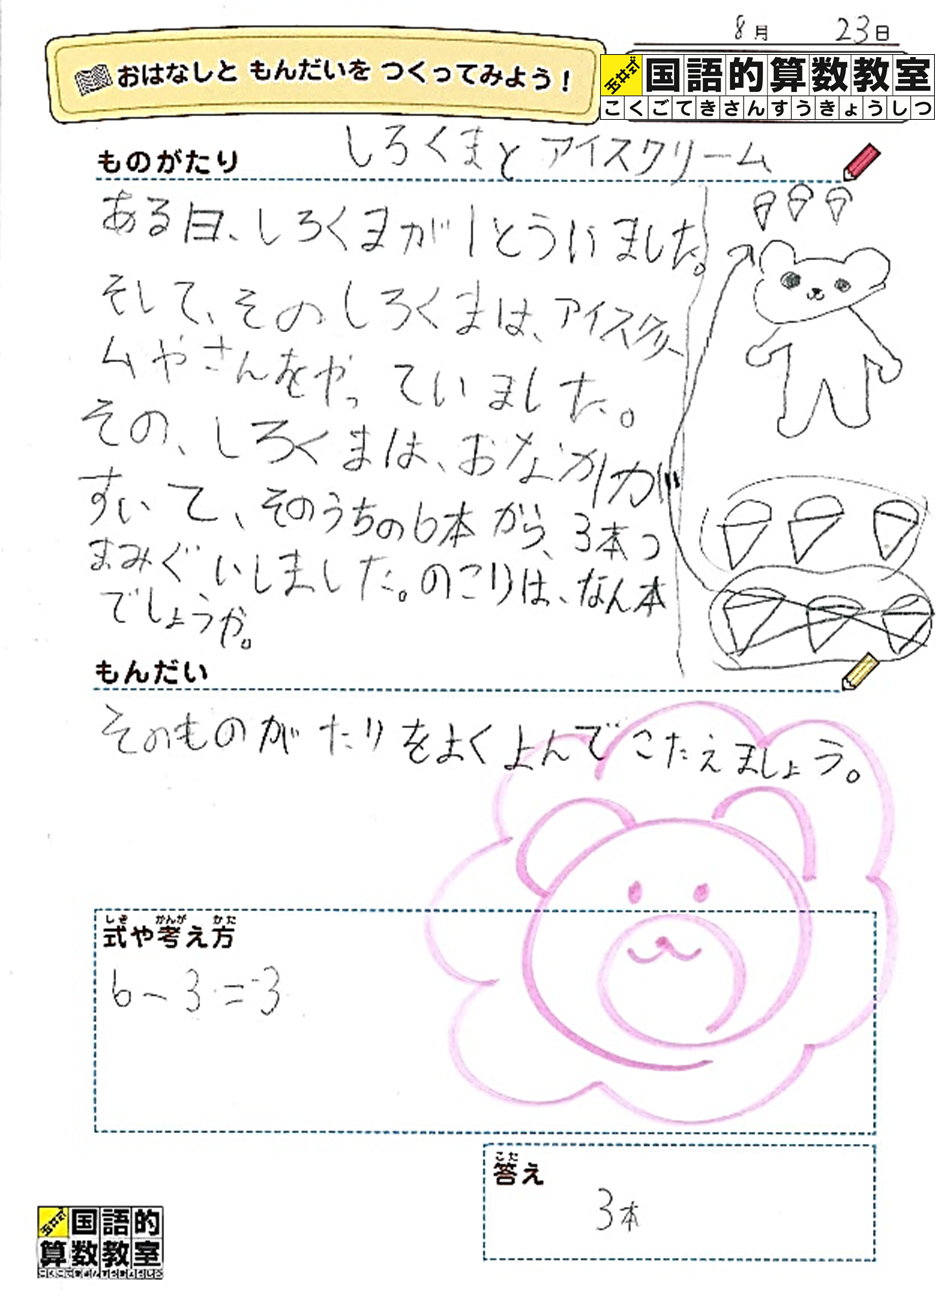 8月 23日
おはなしと もんだいを つくってみよう！
玉井式 国語的算数教室
こくごてきさんすうきょうしつ
ものがたり しろくまと アイスクリーム
ある日、しろくまが1とういました。
そして、そのしろくまは、アイスクリー
ムやさんをやっていました。
その、しろくまは、おなかが
すいて、そのうちの6本から、3本つ
まみぐいしました。のこりは、なん本
でしょうか。
もんだい
そのものがたりをよくよんでこたえましょう。
しき かんが かた
式や考え方
6-3=3
こた
答え
3本
玉井式 国語的
算数教室
こくごてきさんすうきょうしつ